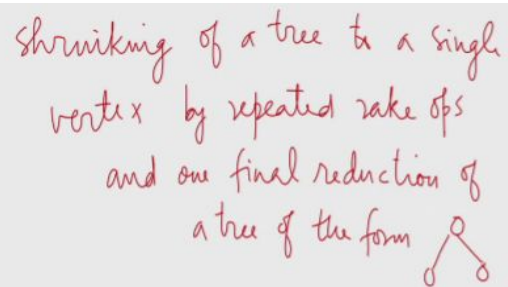 shrinking of a tree to a single
vertex by repeated rake ops
and one final reduction of
a tree of the form